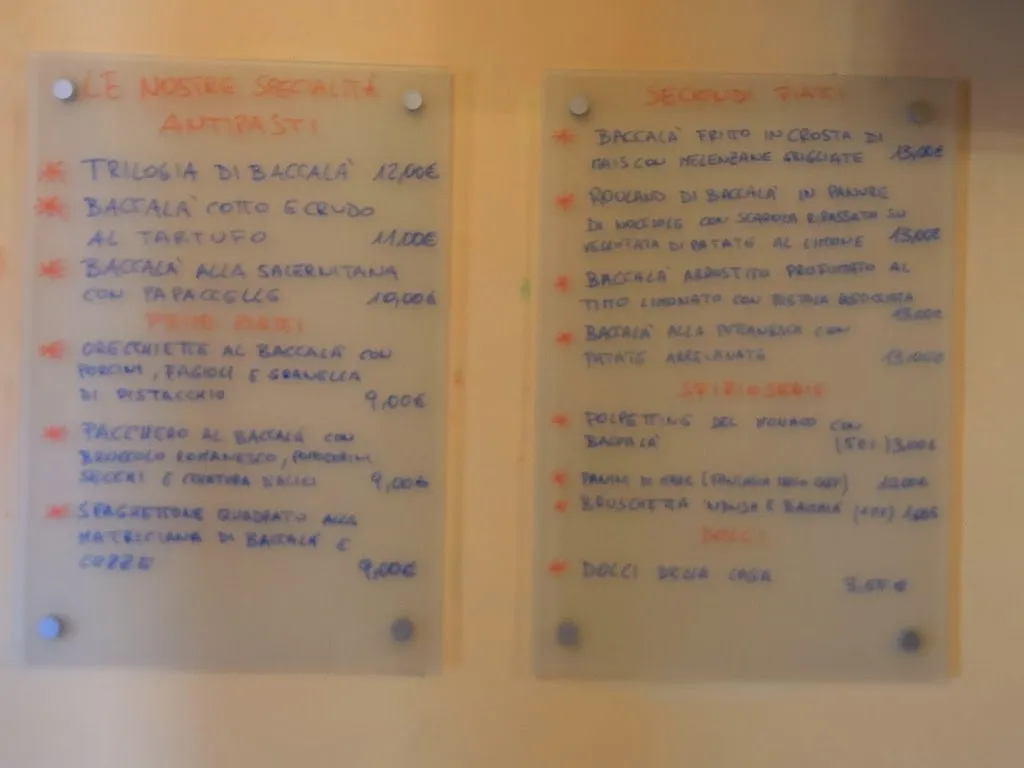 LE NOSTRE SPECIALITÁ
ANTIPASTI
* TRILOGIA DI BACCALA' 12,00€
* BACCALA' COTTO E CRUDO
AL TARTUFO 11,00€
* BACCALA' ALLA SALERNITANA
CON PAPACCELLE 10,00€
PRIMI PIATTI
* ORECCHIETTE AL BACCALA' CON
PORCINI, FAGIOLI E GRANELLA
DI PISTACCHIO 9,00€
* PACCHERO AL BACCALA' CON
BROCCOLO ROMANESCO, POMODORINI
SECCHI E COLATURA D'ALICI 9,00€
* SPAGHETTONE QUADRATO ALLA
MATRICIANA DI BACCALA' E
COZZE 9,00€
SECONDI PIATTI
* BACCALA' FRITTO IN CROSTA DI
MAIS CON MELENZANE GRIGLIATE 13,00€
* ROULAND DI BACCALA' IN PANURE
DI NOCCIOLE CON SCAROLA RIPASSATA SU
VELLUTATA DI PATATE AL LIMONE 13,00€
* BACCALA' ARROSTITO PROFUMATO AL
TIMO LIMONATO CON
13,00€
* BACCALA' ALLA CON
PATATE 13,00€
SFIZIOSERIE
* POLPETTINE DEL MONACO CON
BACCALA'
* PANINI DI
* BRUSCHETTA 'NDUJA E BACCALA'
DOLCI
* DOLCI DELLA CASA